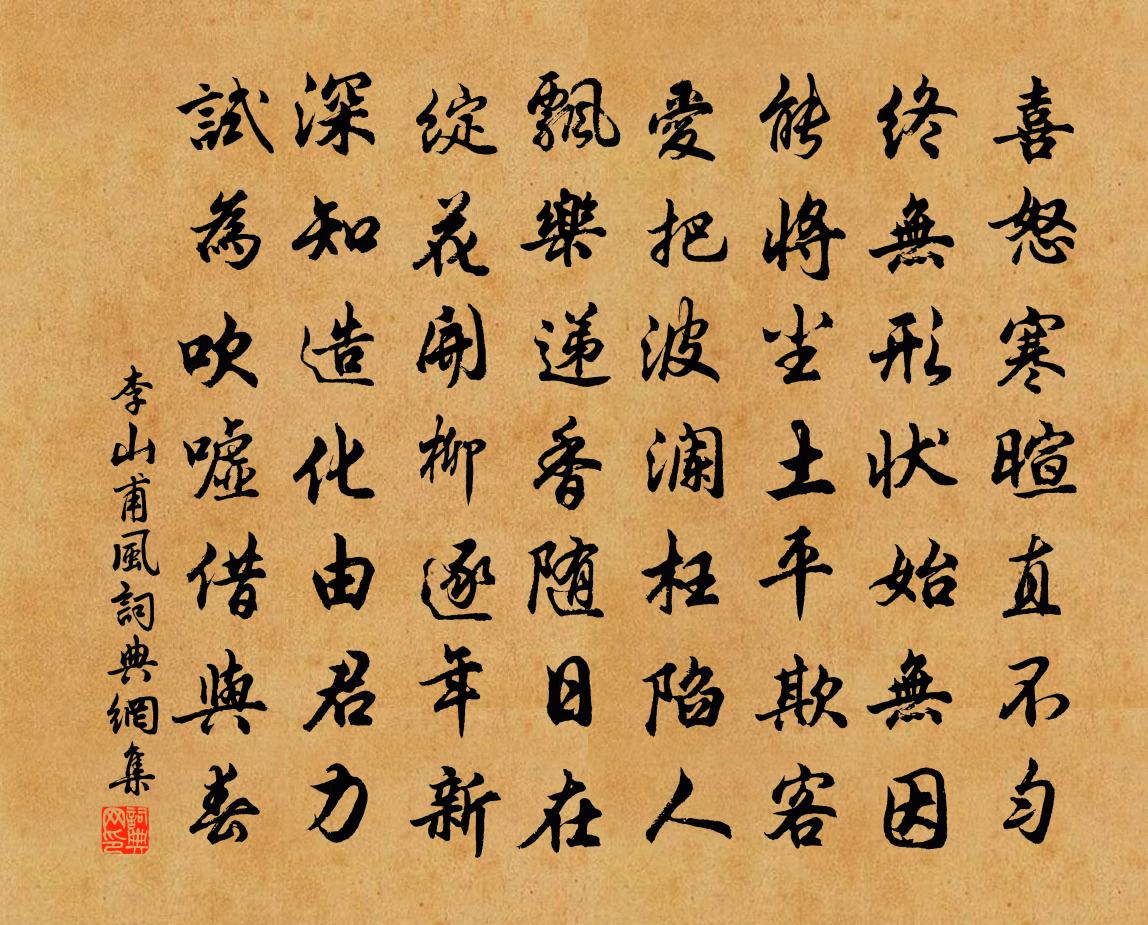 喜怒寒暄直不匀
終無形状始無因
能将尘土平欺客
愛把波澜枉陷人
飄樂递香随日在
綻花開柳逐年新
深知造化由君力
試為吹嘘借與春
李山甫風詞典網集
詞典网印